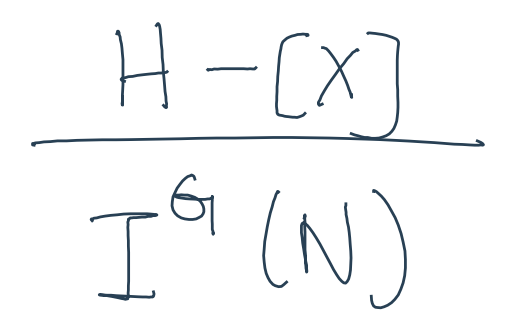 H - [X]
I^G (N)